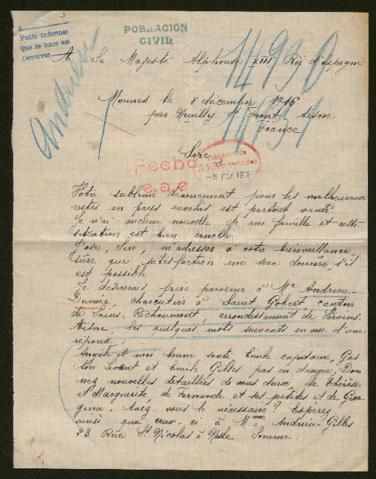 Pedir informes
que se hace así
POBLACIÓN
CIVIL
A Sa Majesté Alphonse XIII Roi d'Espagne
Andrieu
le 8 décembre 1916
par Neuilly St Front Aisne
France
Sire
Fecho
-8 1917
Votre sublime dévouement pour les malheureux
restés en pays envahis est partout vanté.
Je n'ai aucune nouvelle de ma famille et cette
situation est bien cruelle.
J'ose, Sire, m'adresser à votre bienveillance
sûre que satisfaction me sera donnée, s'il
est possible.
Je désirerais faire parvenir à Mr Andrieu
charcutier à Saint Gobert canton
de Sains-Richaumont, arrondissement de Vervins
Aisne les quelques mots suivants en vue d'une
réponse:
Angèle et moi bonne santé, Emile capitaine, Gas
ton et Emile Gilles pas en danger. Don
nez nouvelles détaillées de vous deux, de
et Marguerite de Fernande et ses petites et de Geor
gina. Avez vous le nécessaire? Espérez
ainsi que à Mme Andrieu-Gilles
23 Rue St Nicolas à Nesle Somme: